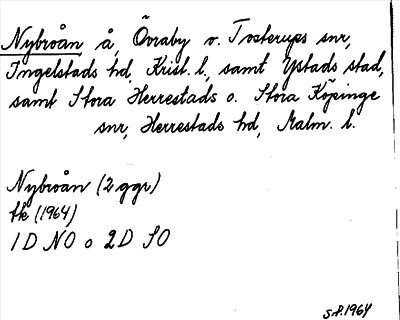 Nybroån å, Övraby o. Tosterups snr,
Ingelstads hd, Krist. l., samt Ystads stad,
samt Stora Herrestads o. Stora Köpinge
snr, Herrestads hd, Malm. l.
Nybroån (2 ggr)
tk (1964)
1D NO o 2D SO
S.P. 1964